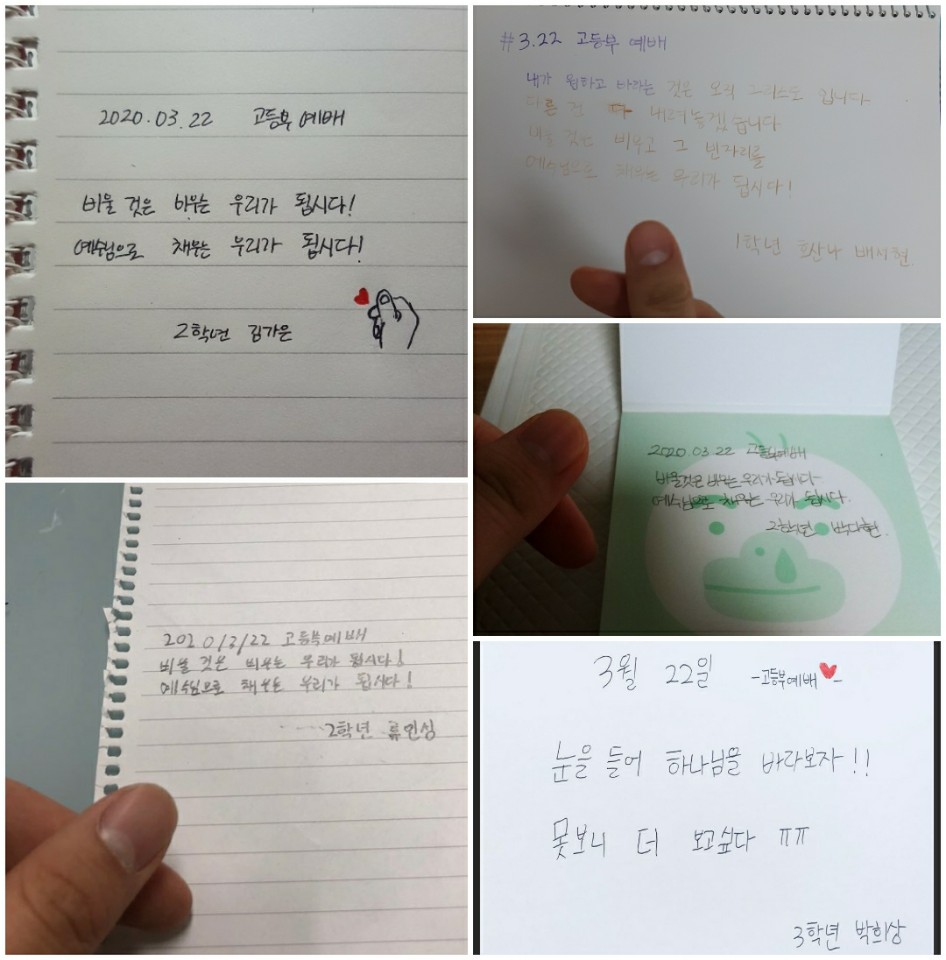 2020.03.22 고등부 예배
비울 것은 비우는 우리가 됩시다!
예수님으로 채우는 우리가 됩시다!
2학년 김가은
#3.22 고등부 예배
내가 원하고 바라는 것은 오직 그리스도 입니다
다른 건 다 내려놓겠습니다
비울 것은 비우고 그 빈자리를
예수님으로 채우는 우리가 됩시다!
1학년 호산나 배서현
2020.03.22 고등부예배
비울것은 비우는 우리가 됩시다
예수님으로 채우는 우리가 됩시다.
2학년 박다현
2020/3/22 고등부예배
비울 것은 비우는 우리가 됩시다!
예수님으로 채우는 우리가 됩시다!
2학년 류인성
3월 22일 -고등부예배♥-
눈을 들어 하나님을 바라보자!!
못보니 더 보고싶다 ㅠㅠ
3학년 박희상